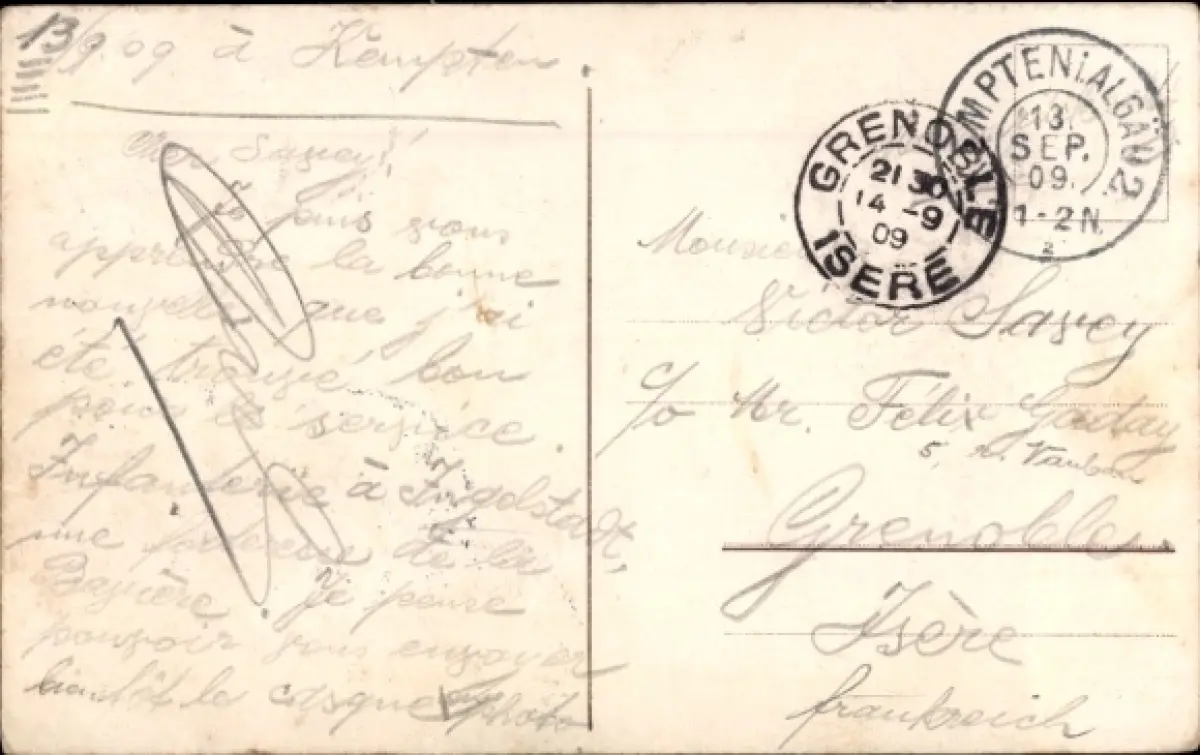 13/9.09 à Kempten.
Cher Savey!
Je puis vous
apprendre la bonne
nouvelle que j'ai
été trouvé bon
pour le service.
Infanterie à Ingolstadt,
une forteresse de la
Bavière. Je pense
pouvoir vous envoyer
bientôt le casque photo
KEMPTEN i. ALGÄU 2
13.
SEP.
09.
1-2N.
GRENOBLE
21 30
14 -9
09
ISERE
Monsieur
Victor Savey
c/o Mr. Félix
5, r. Vauban
Grenoble.
Isère
Frankreich